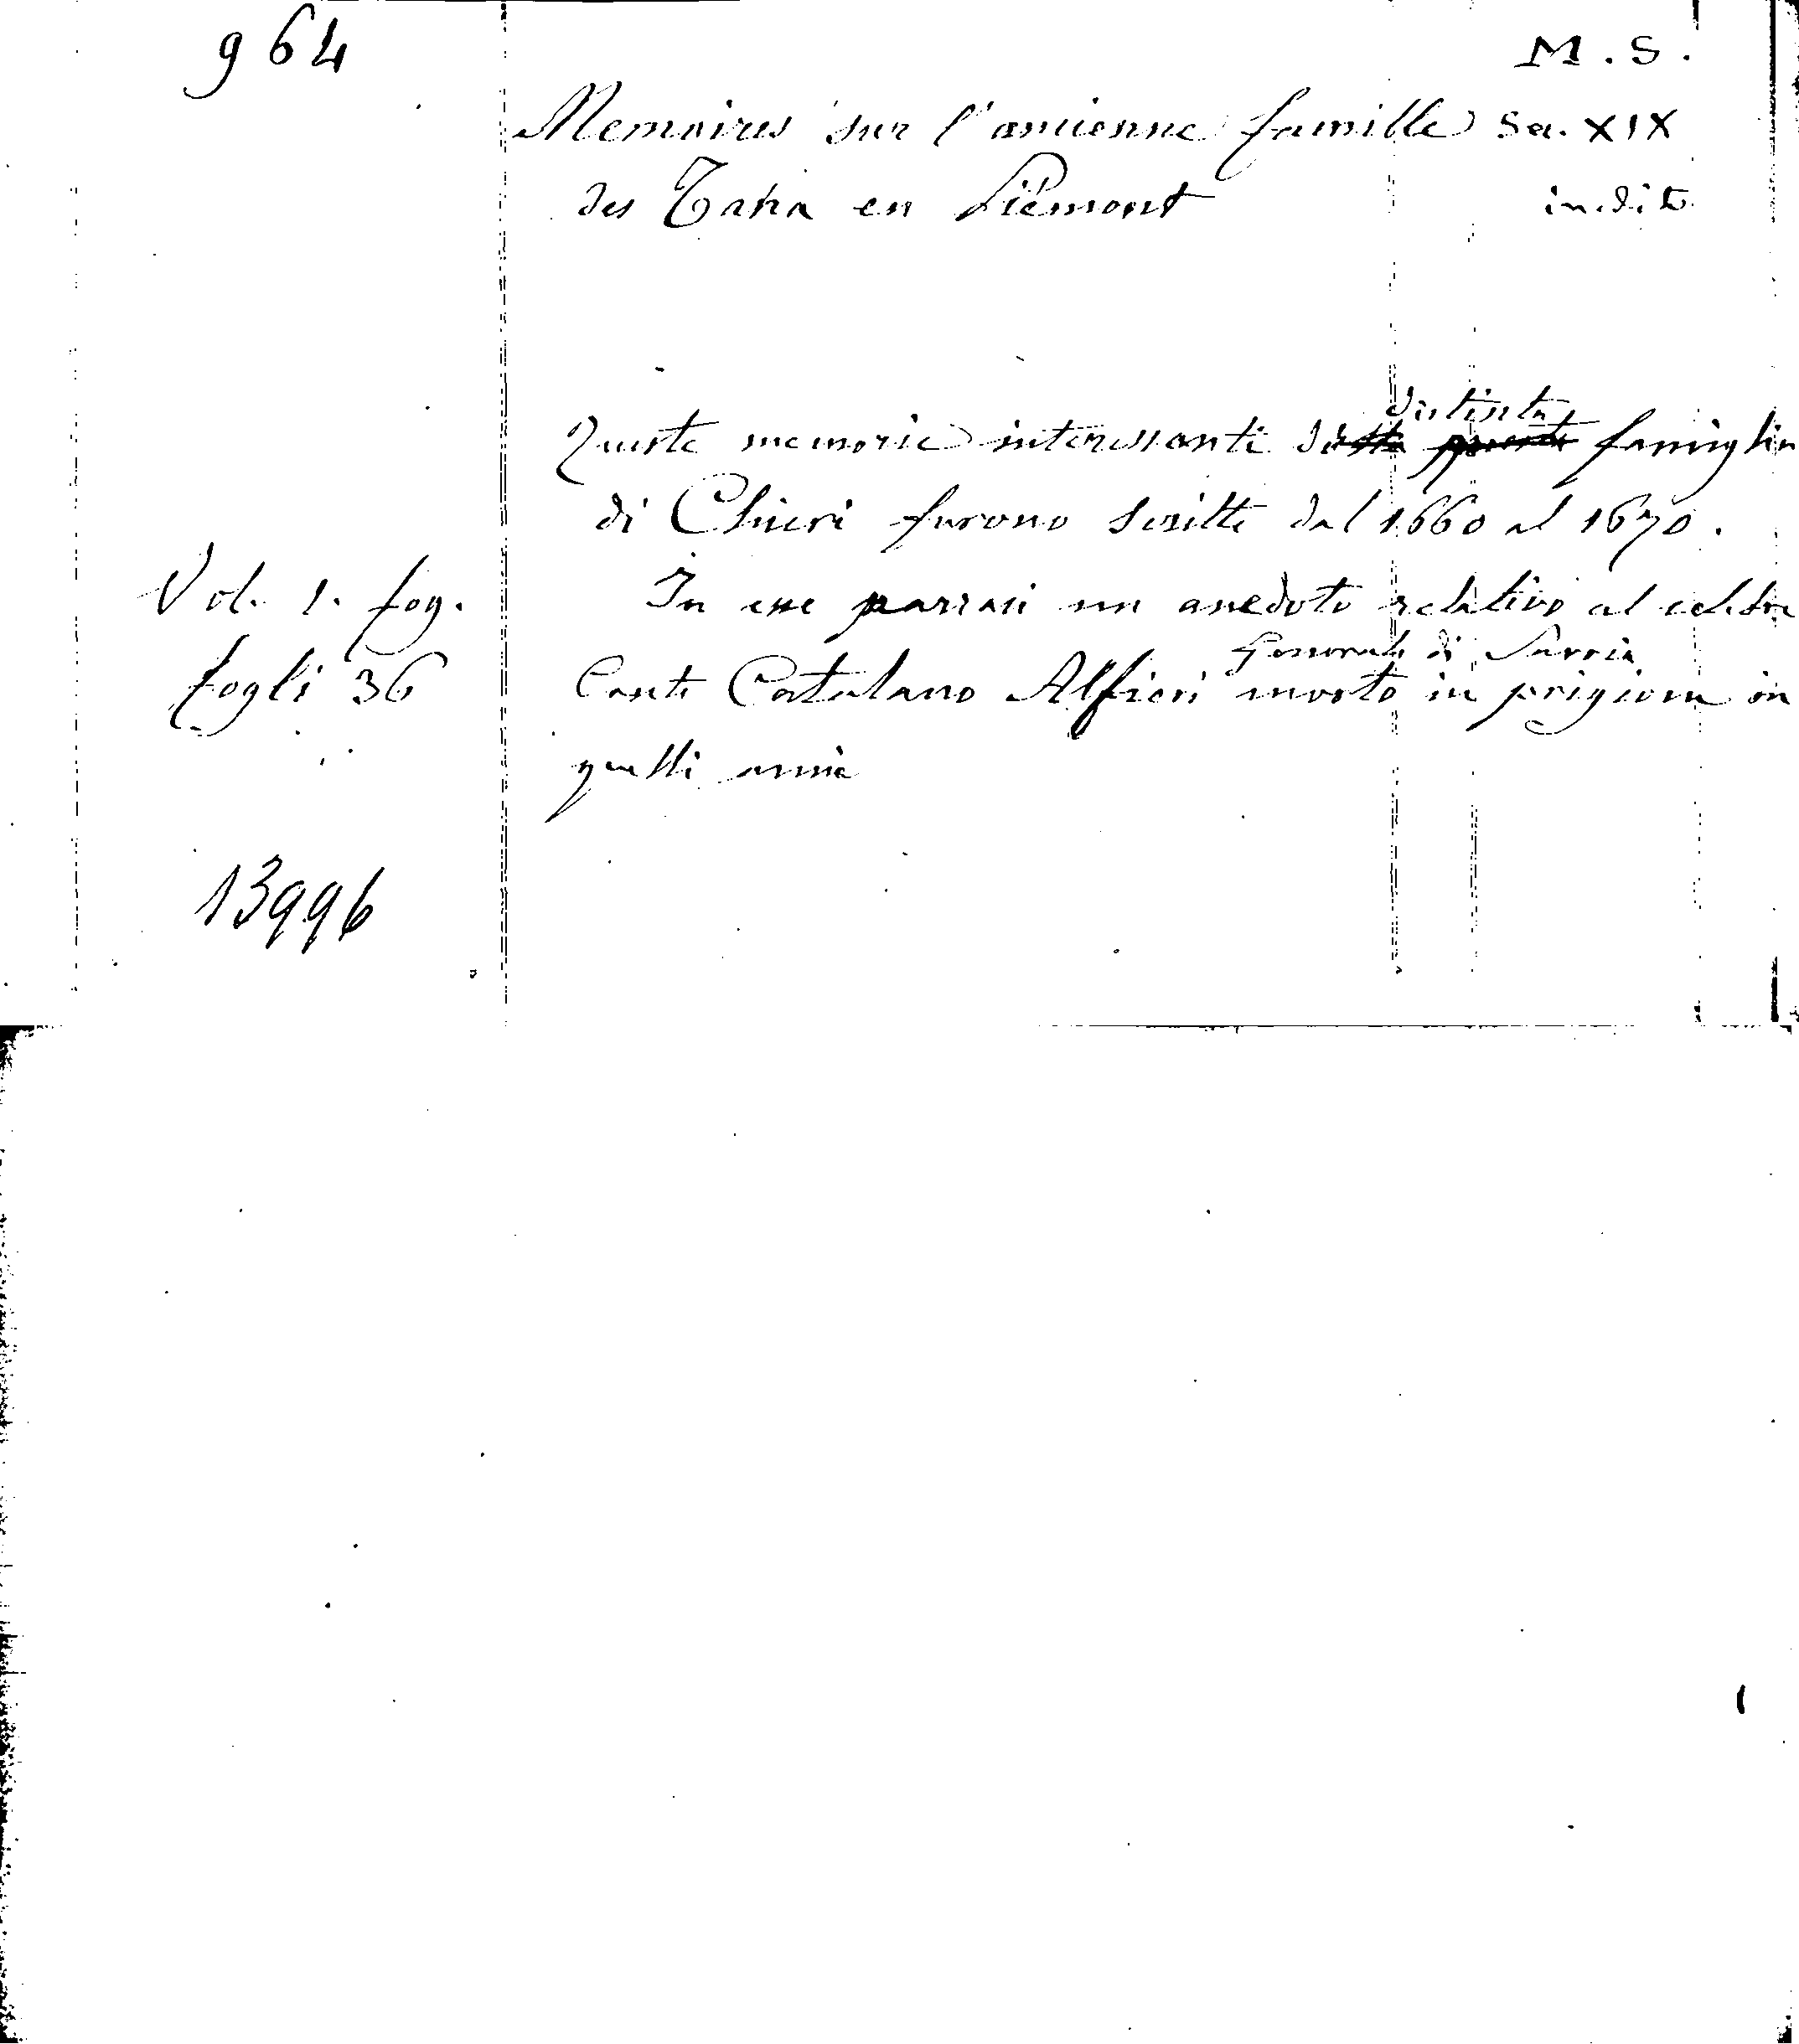 964
M.S.
Memoires sur l'ancienne famille Sec. XIX
des Tana en Piémont inedito
distinta
Queste memorie interessanti famiglia
di Chieri furono scritte dal 1660 al 1670.
Vol. 1. fog.
In esse narrasi un anedoto relativo al celebre
Generale di Savoia
fogli 36
Conte Catalano Alfieri morto in prigione in
quelli anni
13996